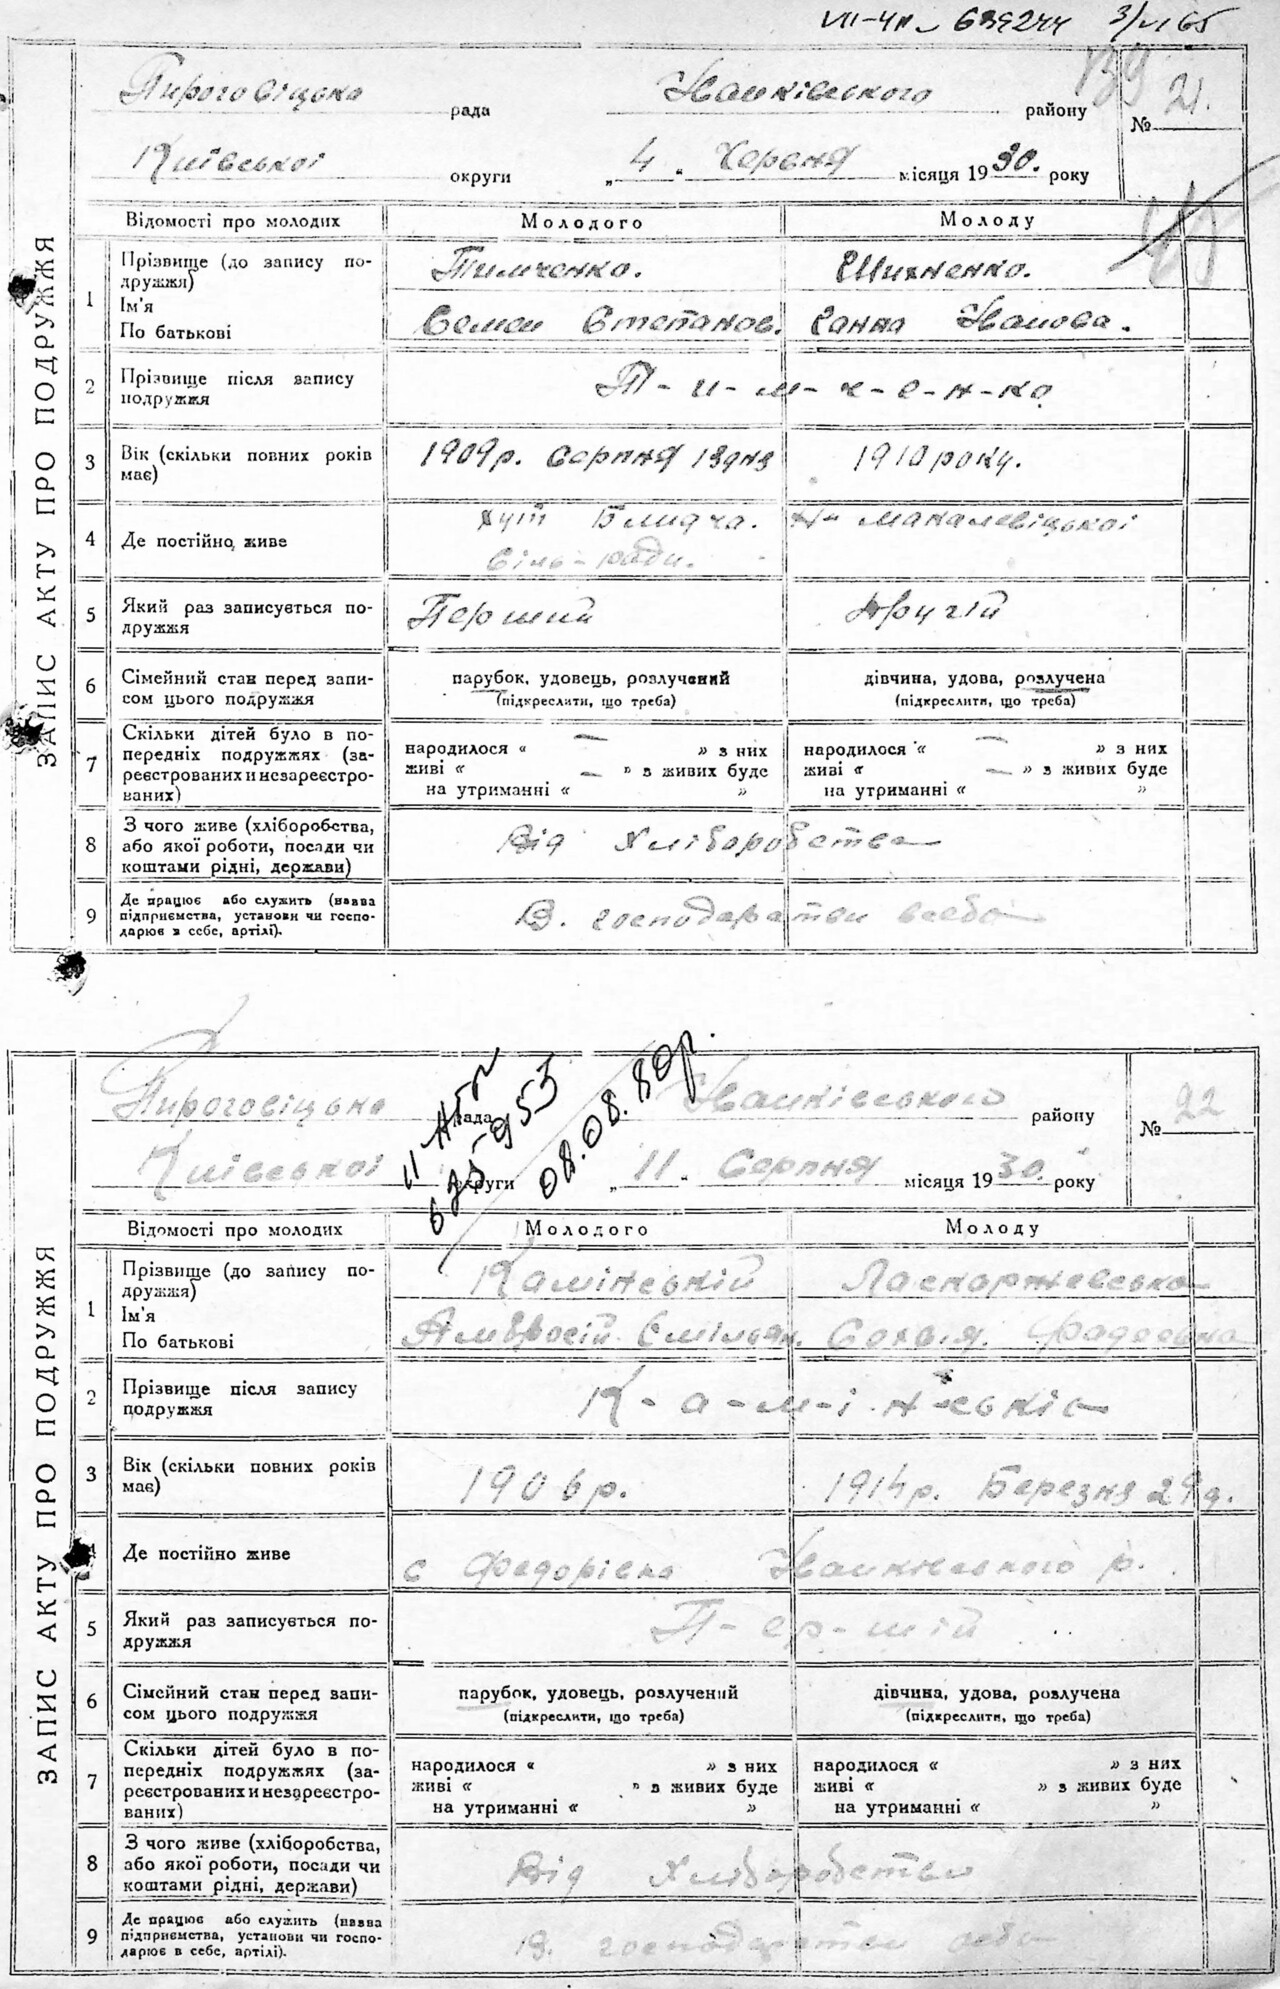 VII-ЧП 639244 3/VI 65
139
Пироговіцька рада Іванківського району № 21.
Київської округи „4" Червня місяця 1930. року
ЗАПИС АКТУ ПРО ПОДРУЖЖЯ
Відомості про молодих Молодого Молоду
1 Прізвище (до запису по-
дружжя) Тимченко. Шихненко.
Ім'я
По батькові Семен Степанов. Ганна Іванова.
2 Прізвище після запису
подружжя Т-и-м-ч-е-н-ко
3 Вік (скільки повних років
має) 1909р. Серпня 13дня 1910 року.
4 Де постійно живе хут Блидча. Макалевіцької
сіль-ради.
5 Який раз записується по-
дружжя Перший Другій
6 Сімейний стан перед запи-
сом цього подружжя
парубок, удовець, розлучений дівчина, удова, розлучена
(підкреслити, що треба) (підкреслити, що треба)
7 Скільки дітей було в по-
передніх подружжях (за-
реєстрованих и незареєстро-
ваних)
народилося « — » з них народилося « — » з них
живі « — » з живих буде живі « — » з живих буде
на утриманні « » на утриманні « »
8 З чого живе (хліборобства,
або якої роботи, посади чи
коштами рідні, держави) Від Хліборобства
9 Де працює або служить (назва
підприємства, установи чи госпо-
дарює в себе, артілі). В. господарстви
Пироговіцька рада Іванківського району № 22
Київської округи „11" Серпня місяця 1930. року
08.08.80р.
ЗАПИС АКТУ ПРО ПОДРУЖЖЯ
Відомості про молодих Молодого Молоду
1 Прізвище (до запису по-
дружжя) Камінській Ласкаржевська
Ім'я
По батькові Амвросій Смільян. Софія Фадеєвна
2 Прізвище після запису
подружжя К-а-м-і-н-ські
3 Вік (скільки повних років
має) 1906р. 1914р. Березня 29д.
4 Де постійно живе с Федорівка Іванківського р.
5 Який раз записується по-
дружжя П-ер-шій
6 Сімейний стан перед запи-
сом цього подружжя
парубок, удовець, розлучений дівчина, удова, розлучена
(підкреслити, що треба) (підкреслити, що треба)
7 Скільки дітей було в по-
передніх подружжях (за-
реєстрованих и незареєстро-
ваних)
народилося « » з них народилося « » з них
живі « » з живих буде живі « » з живих буде
на утриманні « » на утриманні « »
8 З чого живе (хліборобства,
або якої роботи, посади чи
коштами рідні, держави) Від Хліборобства
9 Де працює або служить (назва
підприємства, установи чи госпо-
дарює в себе, артілі). В. господарстви